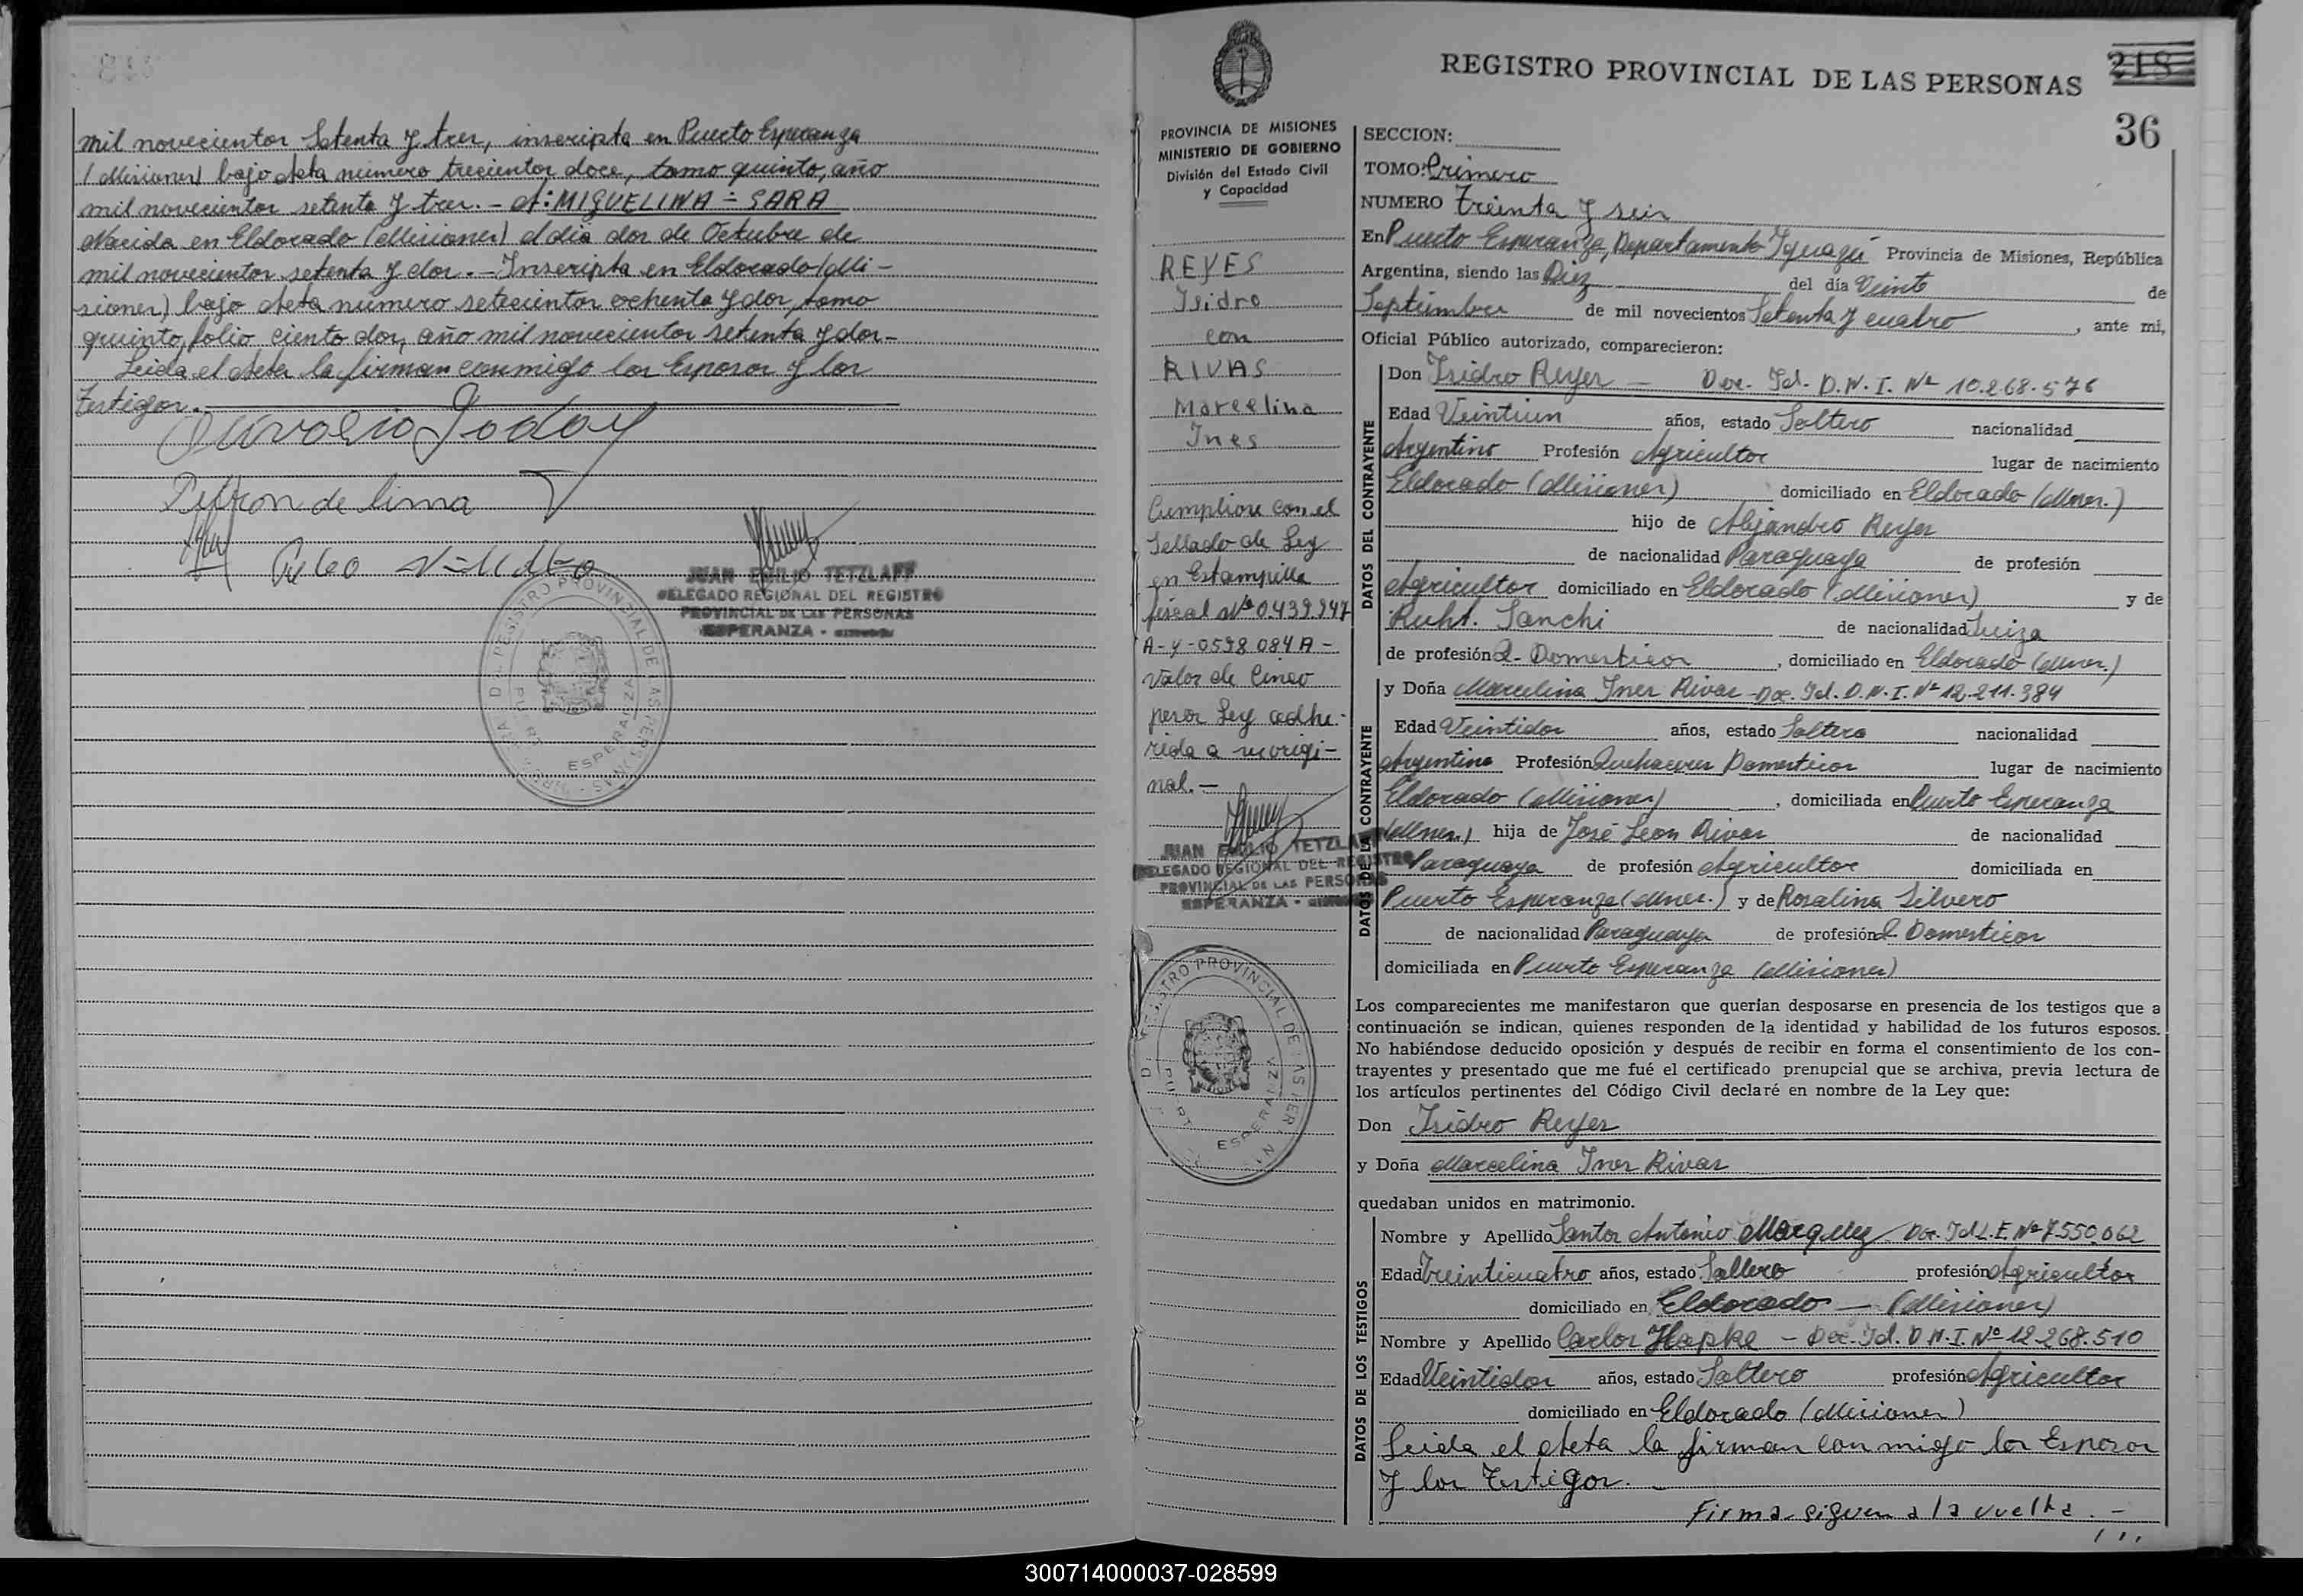 mil novecientos Setenta y tres, inscripta en Puerto Esperanza
(Misiones) bajo Acta número trecientos doce, tomo quinto, año
mil novecientos setenta y tres. - A: MIGUELINA - SARA
Nacida en Eldorado (Misiones) el día dos de Octubre de
mil novecientos setenta y dos. - Inscripta en Eldorado (Mi-
siones) bajo Acta número setecientos ochenta y dos, tomo
quinto, folio ciento dos, año mil novecientos setenta y dos-
Leida el Acta la firman conmigo los Esposos y los
Testigos.
Godoy
de lima
JUAN EMILIO TETZLAFF
DELEGADO REGIONAL DEL REGISTRO
PROVINCIAL DE LAS PERSONAS
ESPERANZA -
REGISTRO PROVINCIAL DE LAS PERSONAS
ESPERANZA
REGISTRO PROVINCIAL DE LAS PERSONAS
218
36
PROVINCIA DE MISIONES
MINISTERIO DE GOBIERNO
División del Estado Civil
y Capacidad
REYES
Isidro
con
RIVAS
Marcelina
Ines
Cumpliose con el
Sellado de Ley
en Estampilla
fiscal Nº 0.439.947
A-y-0598 084 A-
Valor de Cinco
pesos Ley adhe-
rida a su origi-
nal. -
JUAN EMILIO TETZLAFF
DELEGADO REGIONAL DEL REGISTRO
PROVINCIAL DE LAS PERSONAS
ESPERANZA -
REGISTRO PROVINCIAL DE LAS PERSONAS
ESPERANZA
SECCION:
TOMO: Primero
NUMERO Treinta y seis
En Puerto Esperanza, Departamento Iguazú Provincia de Misiones, República
Argentina, siendo las Diez del día Veinte de
Septiembre de mil novecientos Setenta y cuatro, ante mi,
Oficial Público autorizado, comparecieron:
DATOS DEL CONTRAYENTE
Don Isidro Reyes - Doc. Id. D.N.I. Nº 10.268.576
Edad Veintiun años, estado Soltero nacionalidad
Argentino Profesión Agricultor lugar de nacimiento
Eldorado (Misiones) domiciliado en Eldorado (Mnes.)
hijo de Alejandro Reyes
de nacionalidad Paraguaya de profesión
Agricultor domiciliado en Eldorado (Misiones) y de
Ruht. Sanchi de nacionalidad Suiza
de profesión Q. Domesticos, domiciliado en Eldorado (Mnes.)
DATOS DE LA CONTRAYENTE
y Doña Marcelina Ines Rivas - Doc. Id. D.N.I. Nº 12.211.384
Edad Veintidos años, estado Soltera nacionalidad
Argentina Profesión Quehaceres Domesticos lugar de nacimiento
Eldorado (Misiones), domiciliada en Puerto Esperanza
(Mnes.) hija de José Leon Rivas de nacionalidad
Paraguaya de profesión Agricultor domiciliada en
Puerto Esperanza (Mnes.) y de Rosalina Silvero
de nacionalidad Paraguaya de profesión Q. Domesticos
domiciliada en Puerto Esperanza (Misiones)
Los comparecientes me manifestaron que querían desposarse en presencia de los testigos que a
continuación se indican, quienes responden de la identidad y habilidad de los futuros esposos.
No habiéndose deducido oposición y después de recibir en forma el consentimiento de los con-
trayentes y presentado que me fué el certificado prenupcial que se archiva, previa lectura de
los artículos pertinentes del Código Civil declaré en nombre de la Ley que:
Don Isidro Reyes
y Doña Marcelina Ines Rivas
quedaban unidos en matrimonio.
DATOS DE LOS TESTIGOS
Nombre y Apellido Santos Antonio Marquez Doc. Id L.E Nº 7.550.062
Edad Treinticuatro años, estado Soltero profesión Agricultor
domiciliado en Eldorado - (Misiones)
Nombre y Apellido Carlos Hapke - Doc. Id. D.N.I. Nº 12.268.510
Edad Veintidos años, estado Soltero profesión Agricultor
domiciliado en Eldorado (Misiones)
Leida el Acta la firman conmigo los Esposos
y los Testigos.
Firma siguen a la vuelta. -
300714000037-028599